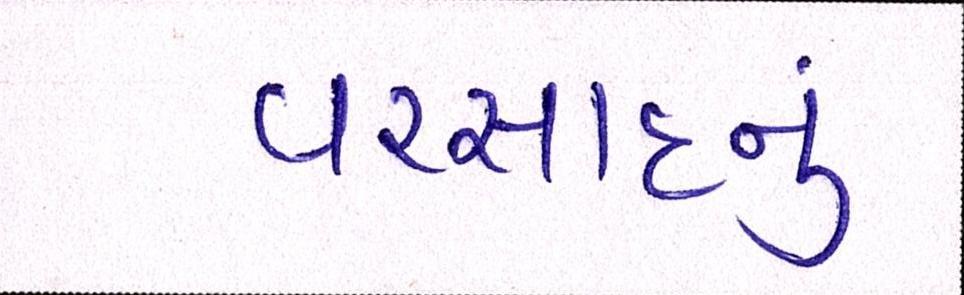 વરસાદનું